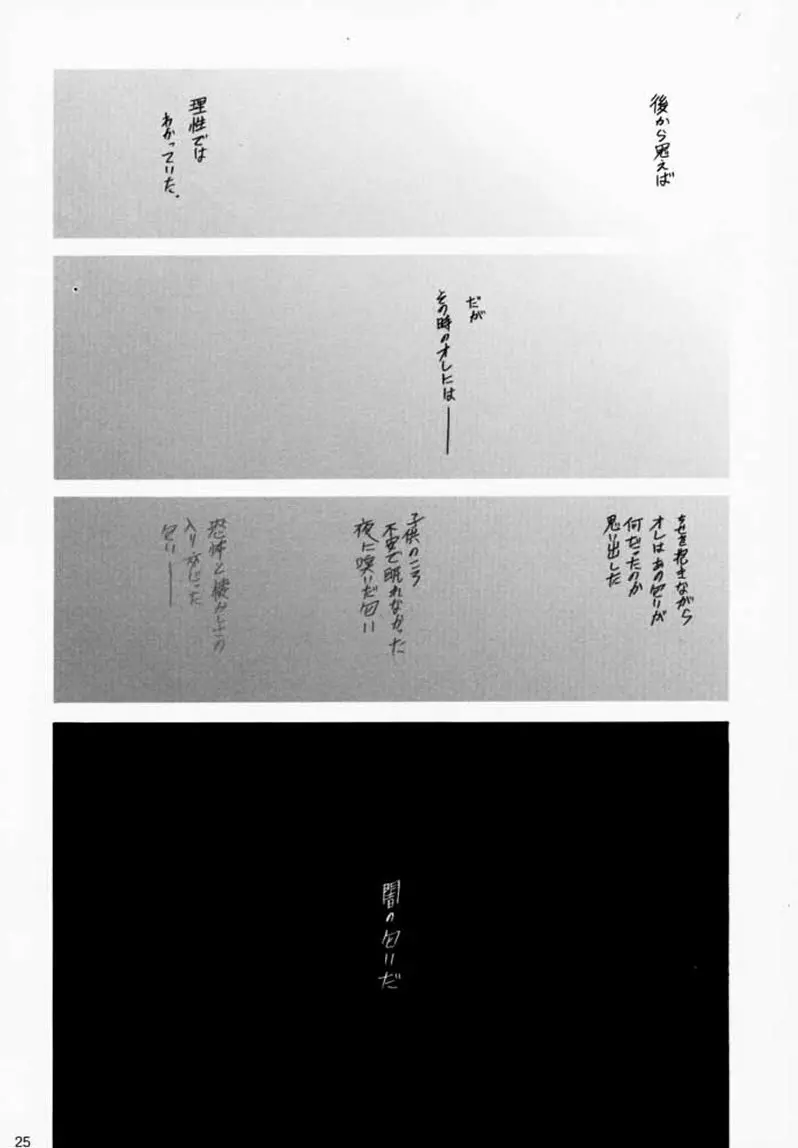 後から思えば
理性では
わかっていた。
だが
その時のオレには——
を抱きながら
オレはあの匂いが
何だったのか
思い出した
子供のころ
不安で眠れなかった
夜に嗅いだ匂い
恐怖と懐かしさの
入り交じった
匂い——
闇の匂いだ
25